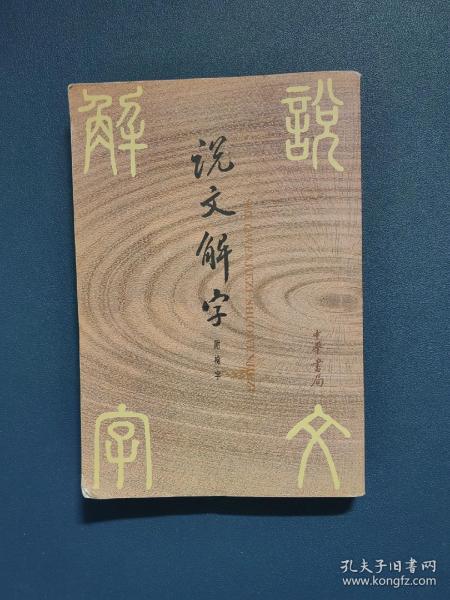 說文
解字
说文解字
附检字
SHUOWENJIEZI
中华书局
孔夫子旧书网
www.kongfz.com